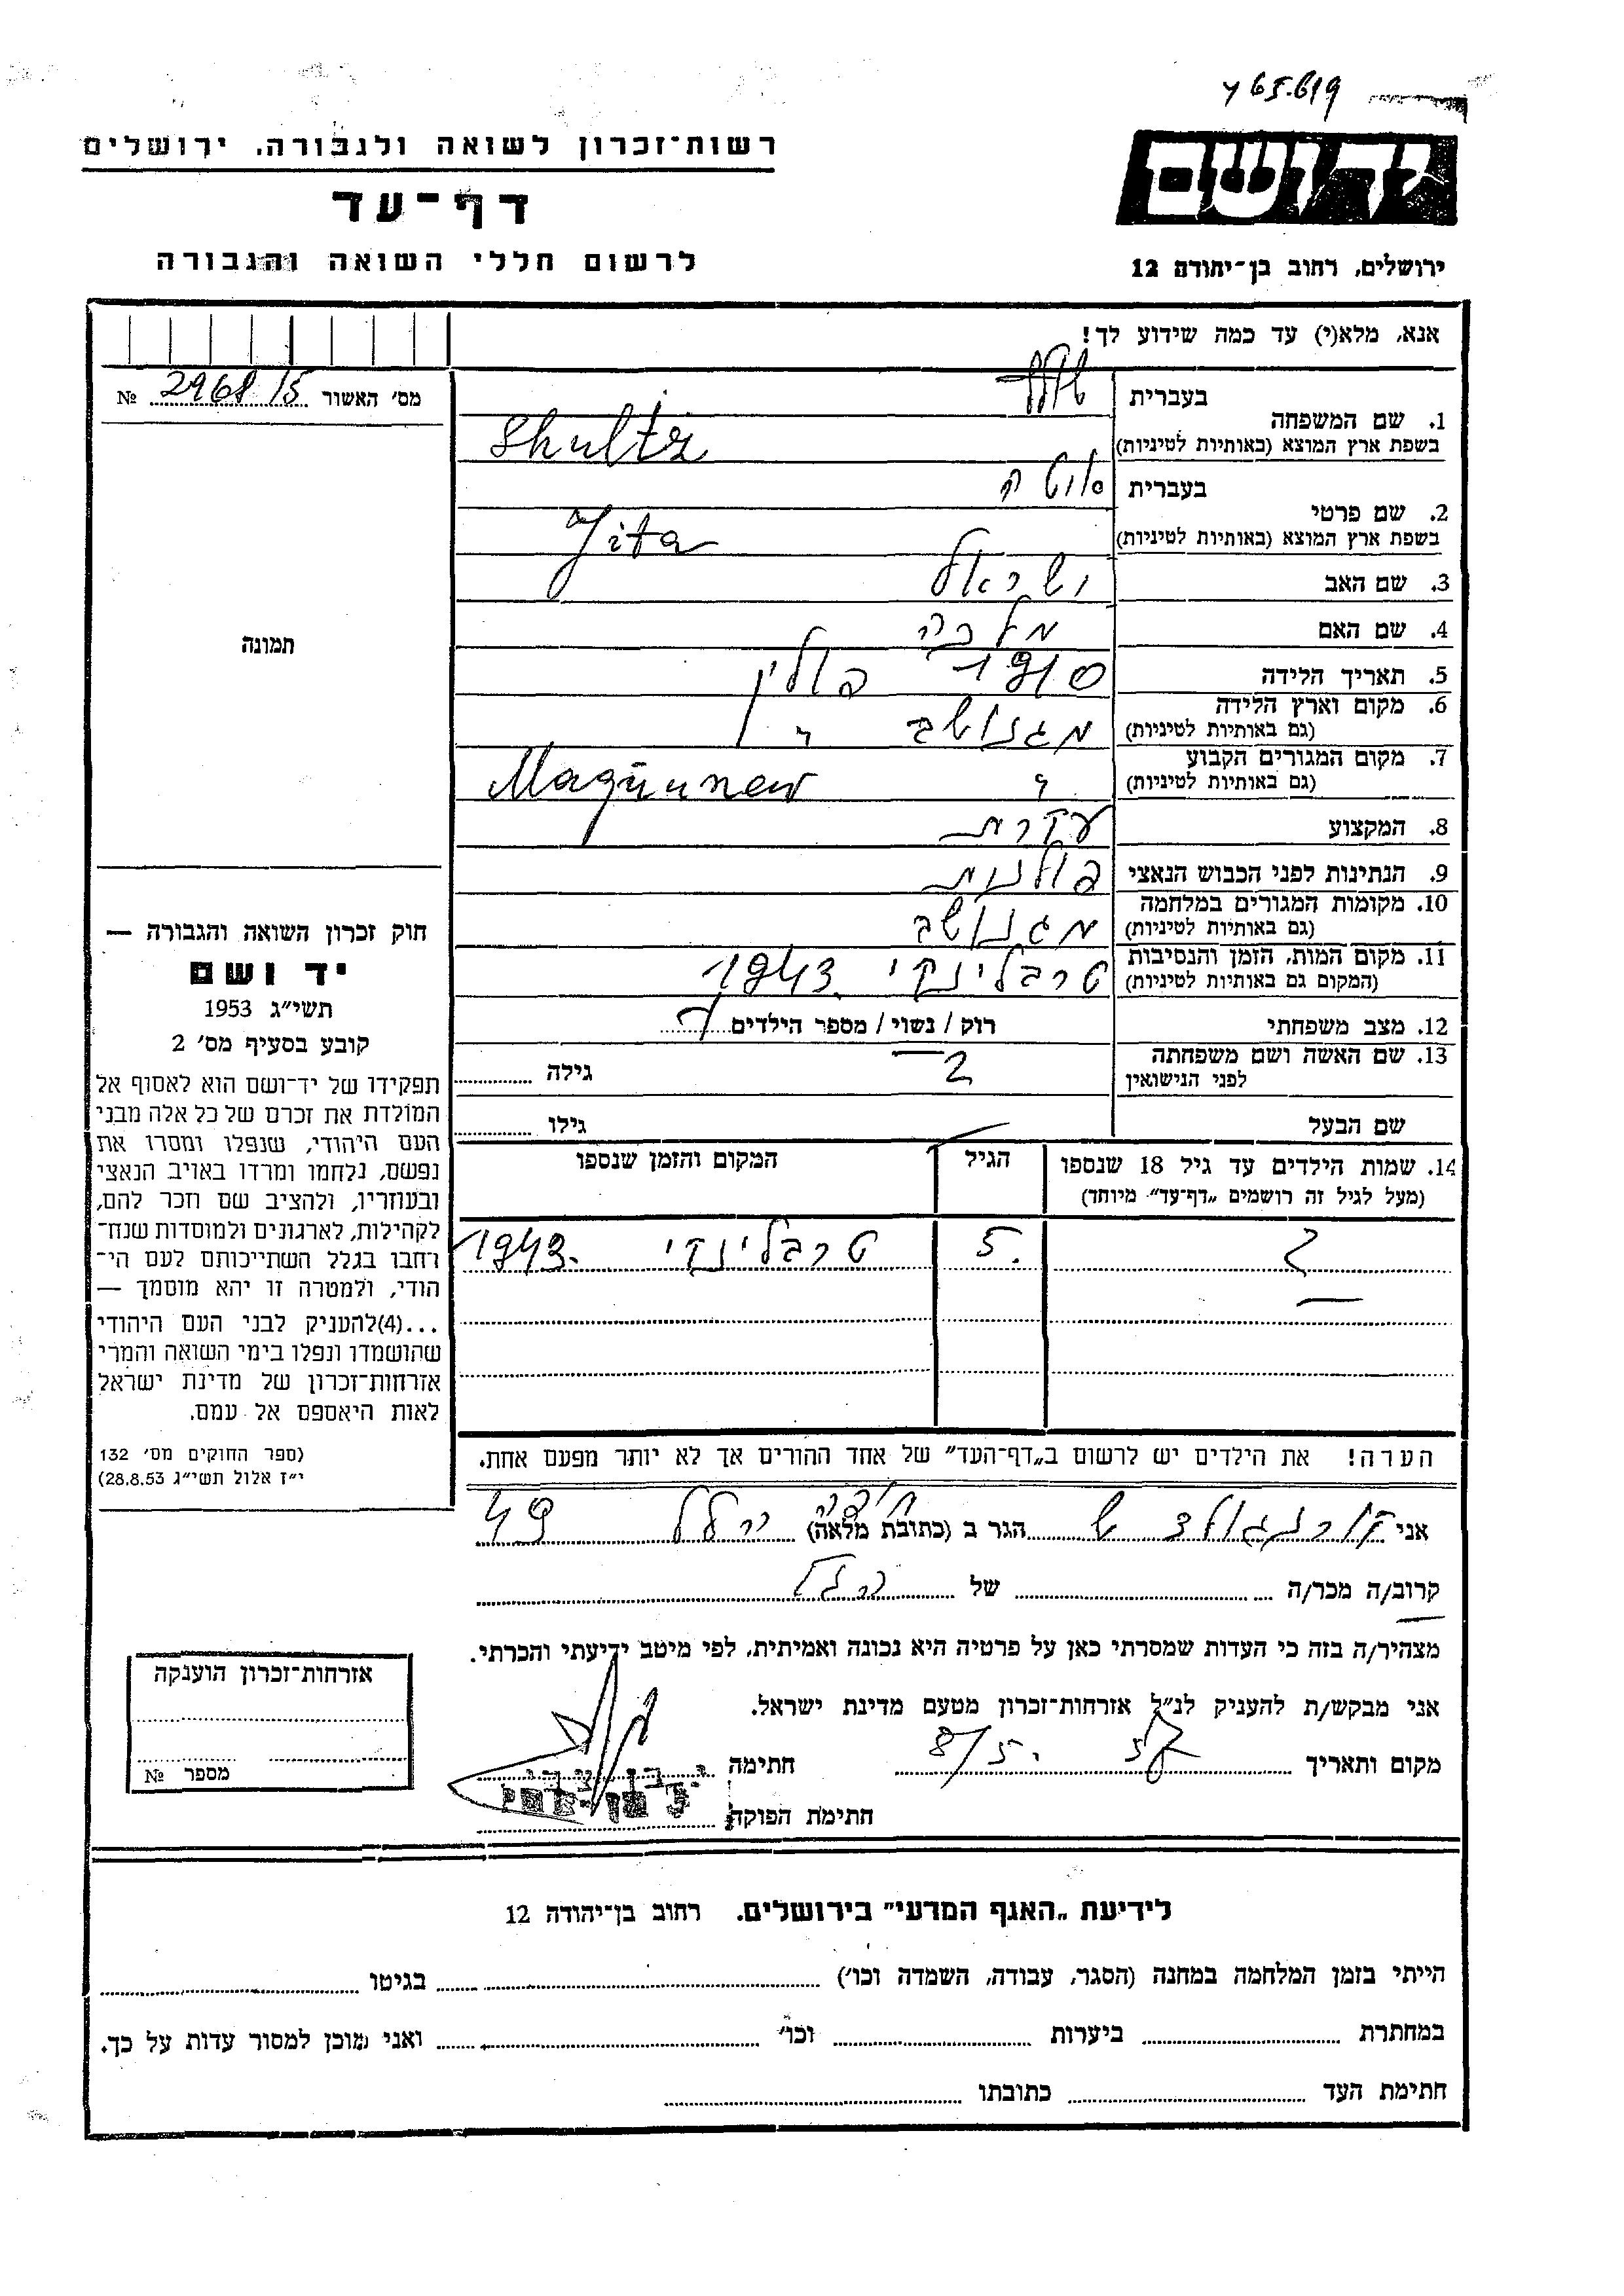 y 65.619
ידושם
רשות־זכרון לשואה ולגבורה. ירושלים
דף־עד
לרשום חללי השואה והגבורה
ירושלים, רחוב בן־יהודה 12
אנא, מלא(י) עד כמה שידוע לך!
מס׳ האשור 2968/5 №
תמונה
1. שם המשפחה
בעברית
בשפת ארץ המוצא (באותיות לטיניות) Shultz
2. שם פרטי
בעברית
בשפת ארץ המוצא (באותיות לטיניות) Jita
3. שם האב ישראל
4. שם האם מלכה
5. תאריך הלידה 1910 פולין
6. מקום וארץ הלידה
(גם באותיות לטיניות) מגנושב
7. מקום המגורים הקבוע
(גם באותיות לטיניות) Magnunew
8. המקצוע עקרת
9. הנתינות לפני הכבוש הנאצי פולנית
10. מקומות המגורים במלחמה
(גם באותיות לטיניות) מגנושב
11. מקום המות, הזמן והנסיבות
(המקום גם באותיות לטיניות) טרבלינקי 1943
12. מצב משפחתי רוק / נשוי / מספר הילדים
13. שם האשה ושם משפחתה
לפני הנישואין 2 גילה
שם הבעל גילו
14. שמות הילדים עד גיל 18 שנספו הגיל המקום והזמן שנספו
(מעל לגיל זה רושמים „דף־עד״ מיוחד)
2 5. טרבלינקי 1943.
הערה! את הילדים יש לרשום ב„דף־העד״ של אחד ההורים אך לא יותר מפעם אחת.
חוק זכרון השואה והגבורה —
יד ושם
תשי״ג 1953
קובע בסעיף מס׳ 2
תפקידו של יד־ושם הוא לאסוף אל
המולדת את זכרם של כל אלה מבני
העם היהודי, שנפלו ומסרו את
נפשם, נלחמו ומרדו באויב הנאצי
ובעוזריו, ולהציב שם וזכר להם,
לקהילות, לארגונים ולמוסדות שנח־
רחבו בגלל השתייכותם לעם הי־
הודי, ולמטרה זו יהא מוסמך —
...(4)להעניק לבני העם היהודי
שהושמדו ונפלו בימי השואה והמרי
אזרחות־זכרון של מדינת ישראל
לאות היאספם אל עמם.
(ספר החוקים מס׳ 132
י״ז אלול תשי״ג 28.8.53)
אני הגר ב (כתובת מלאה) חיפה הלל 49
קרוב/ה מכר/ה של
מצהיר/ה בזה כי העדות שמסרתי כאן על פרטיה היא נכונה ואמיתית, לפי מיטב ידיעתי והכרתי.
אני מבקש/ת להעניק לנ״ל אזרחות־זכרון מטעם מדינת ישראל.
מקום ותאריך 8/5. 57 חתימה
חתימת הפוקד
אזרחות־זכרון הוענקה
מספר №
לידיעת „האגף המדעי״ בירושלים. רחוב בן־יהודה 12
הייתי בזמן המלחמה במחנה (הסגר, עבודה, השמדה וכו׳) בגיטו
במחתרת ביערות וכו׳ ואני מוכן למסור עדות על כך.
חתימת העד כתובתו